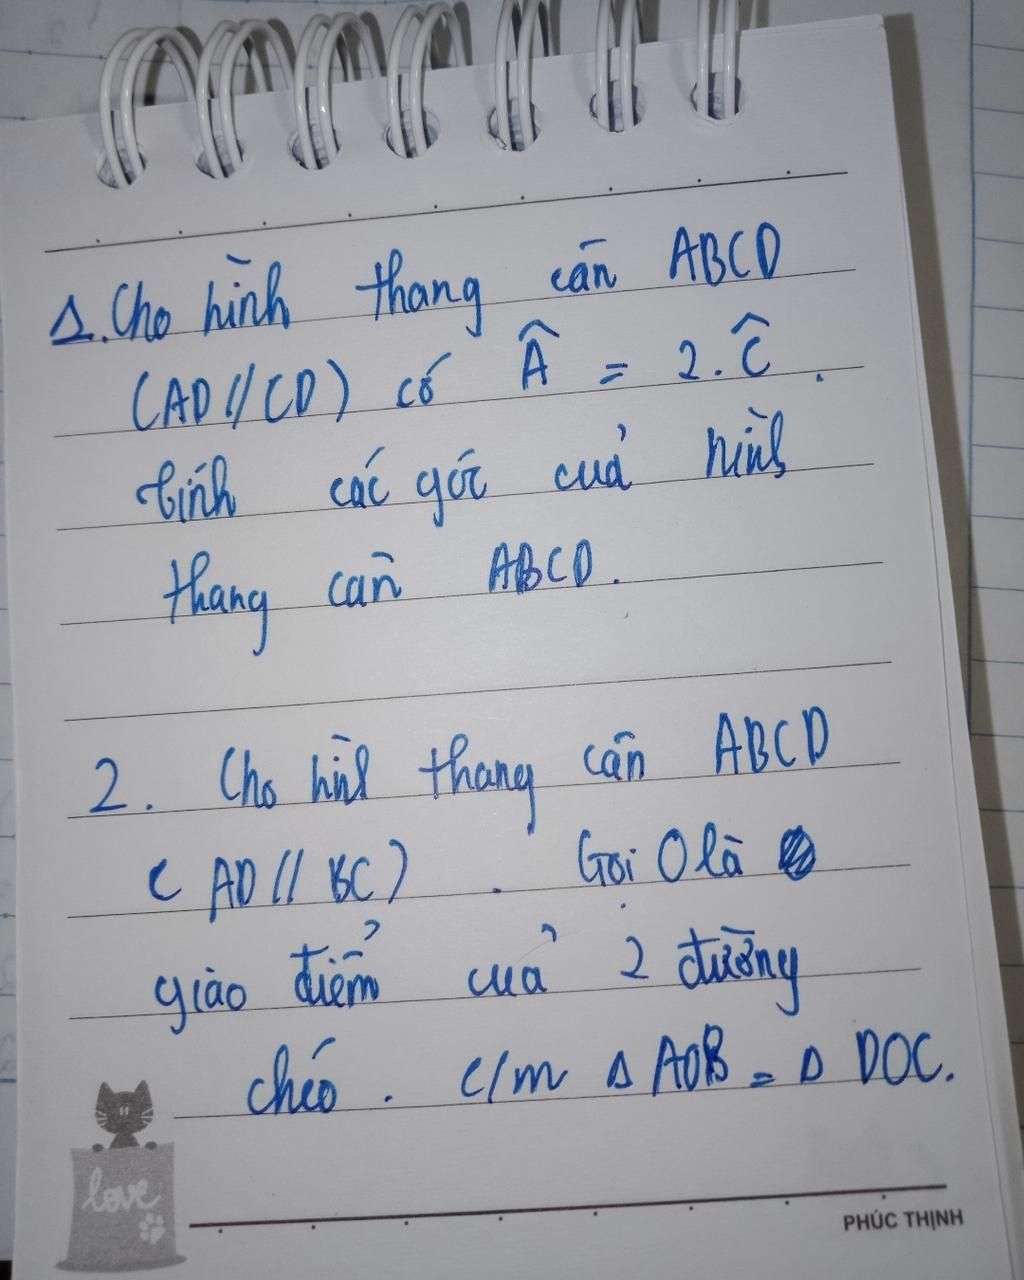 1. Cho hình thang cân ABCD
(AD // CD) có Â = 2. Ĉ.
tính các góc của hình
thang cân ABCD.
2. Cho hình thang cân ABCD
(AD // BC). Gọi O là
giao điểm của 2 đường
chéo. c/m Δ AOB = Δ DOC.
love
PHÚC THỊNH